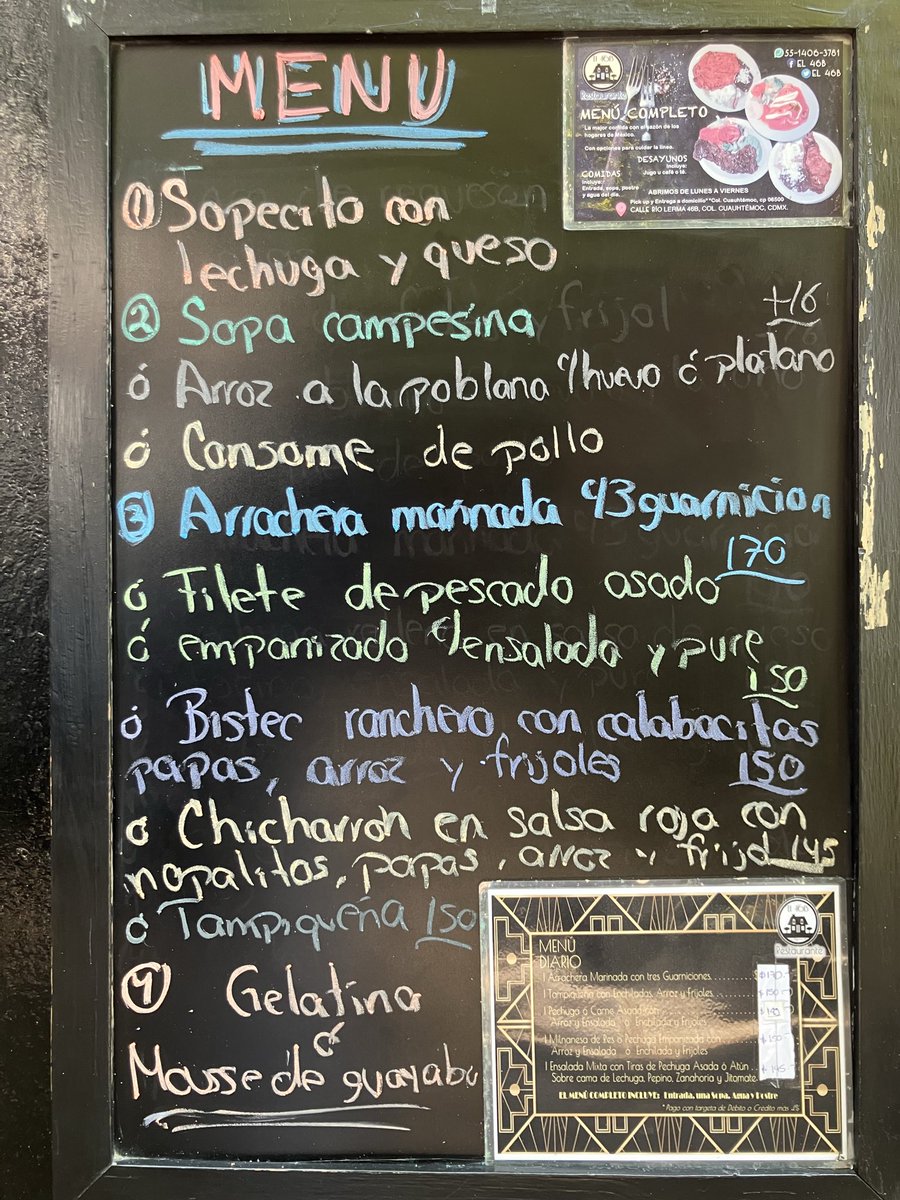 MENU
① Sopecito con
lechuga y queso
② Sopa campesina
+16
ó Arroz a la poblana c/huevo ó platano
ó Consome de pollo
③ Arrachera marinada c/3 guarnicion
170
ó Filete de pescado asado
ó empanizado c/ensalada y pure
150
ó Bistec ranchero con calabacitas
papas, arroz y frijoles 150
ó Chicharron en salsa roja con
nopalitos, papas, arroz y frijol 145
ó Tampiqueña 150
④ Gelatina
ó
Mousse de guayaba
55-1406-3781
EL 46B
EL 46B
El 46B
Restaurante
MENÚ COMPLETO
La mejor comida con el sazón de los
hogares de México.
Con opciones para cuidar la línea.
DESAYUNOS
Incluye:
Jugo u café o té.
COMIDAS
Incluye:
Entrada, sopa, postre
y agua del día.
ABRIMOS DE LUNES A VIERNES
Pick up y Entrega a domicilio* *Col. Cuauhtémoc, cp 06500
CALLE RÍO LERMA 46B, COL. CUAUHTÉMOC, CDMX.
El 46B
Restaurante
MENÚ
DIARIO
| Arrachera Marinada con tres Guarniciones. $170
| Tampiqueña con Enchiladas, Arroz y Frijoles $150
| Pechuga ó Carne Asada con
Arroz y Ensalada ó Enchilada y Frijoles
| Milnanesa de Res o Pechuga Empanizada con $150
Arroz y Ensalada ó Enchilada y Frijoles
| Ensalada Mixta con Tiras de Pechuga Asada ó Atún $145
Sobre cama de Lechuga, Pepino, Zanahoria y Jitomate.
EL MENÚ COMPLETO INCLUYE: Entrada, una Sopa, Agua y Postre
*Pago con targeta de Débito o Credito mas 4%